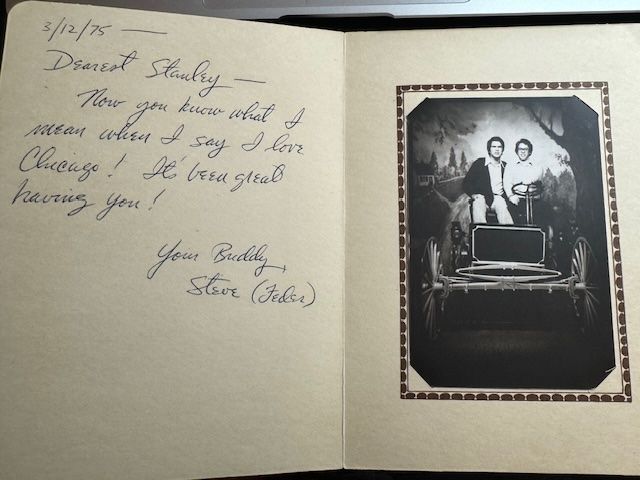 3/12/75 —
Dearest Stanley —
Now you know what I
mean when I say I love
Chicago! It's been great
having you!
Your Buddy,
Steve (Feder)